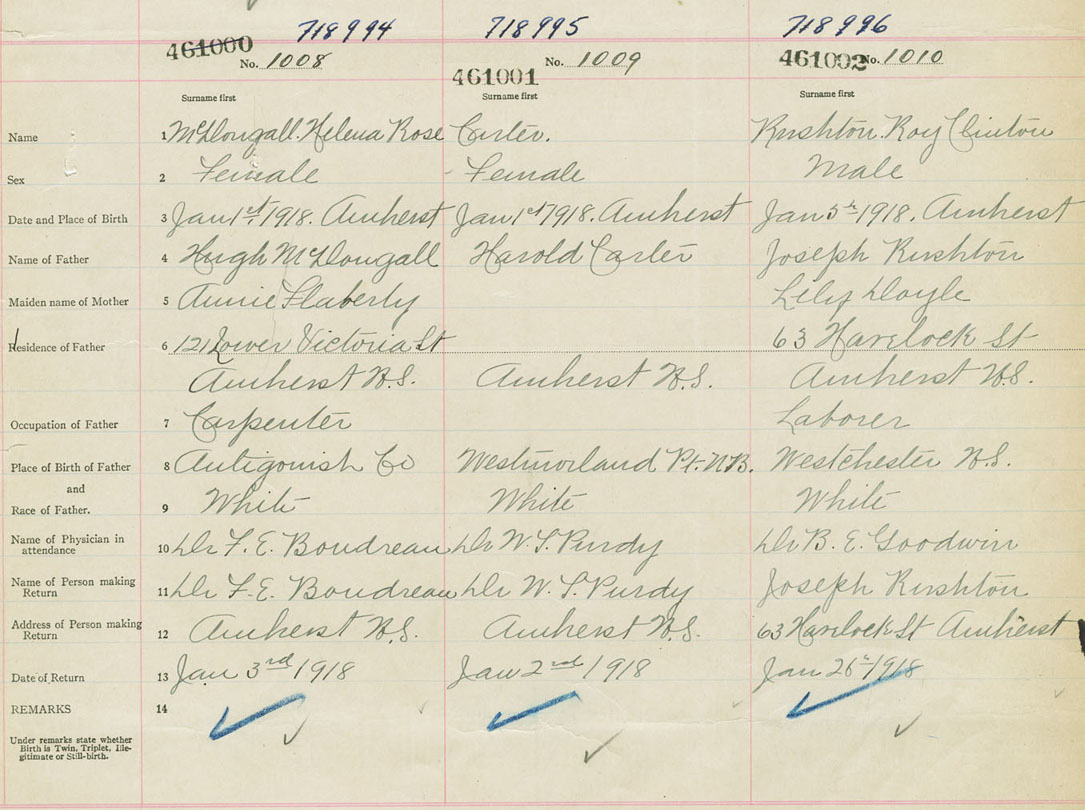 718994 718995 718996
461000 No. 1008 461001 No. 1009 461002 No. 1010
Surname first Surname first Surname first
Name 1 McDougall. Helena Rose Carter. Rushton. Roy Clinton
Sex 2 Female Female Male
Date and Place of Birth 3 Jan 1st 1918. Amherst Jan 1st 1918. Amherst Jan 5th 1918. Amherst
Name of Father 4 Hugh McDougall Harold Carter Joseph Rushton
Maiden name of Mother 5 Annie Flaherty Lily Doyle
Residence of Father 6 121 Lower Victoria St 63 Havelock St
Amherst N.S. Amherst N.S. Amherst N.S.
Occupation of Father 7 Carpenter Laborer
Place of Birth of Father 8 Antigonish Co Westmorland Pt. N.B. Westchester N.S.
and
Race of Father. 9 White White White
Name of Physician in
attendance 10 Dr F. E. Boudreau Dr W. S. Purdy Dr B. E. Goodwin
Name of Person making
Return 11 Dr F. E. Boudreau Dr W. S. Purdy Joseph Rushton
Address of Person making
Return 12 Amherst N.S. Amherst N.S. 63 Havelock St Amherst
Date of Return 13 Jan 3rd 1918 Jan 2nd 1918 Jan 26th 1918
REMARKS 14
Under remarks state whether
Birth is Twin, Triplet, Ille-
gitimate or Still-birth.